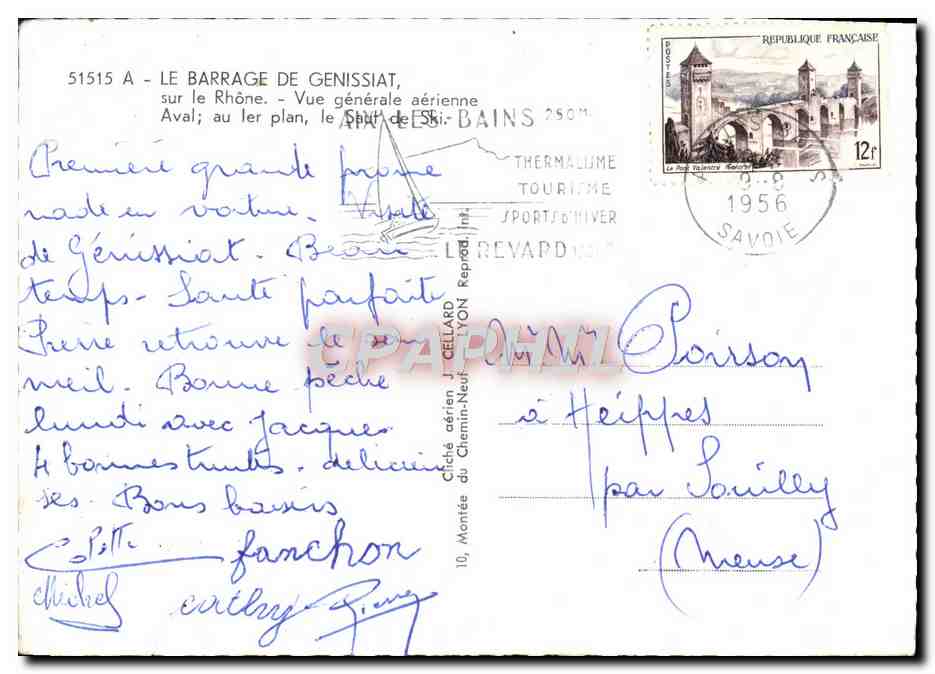 51515 A - LE BARRAGE DE GENISSIAT,
sur le Rhône. - Vue générale aérienne
Aval; au 1er plan, le Saut de Ski.-
AIX-LES-BAINS 250M.
THERMALISME
TOURISME
SPORTS D'HIVER
LE REVARD
POSTES
REPUBLIQUE FRANÇAISE
Le Pont Valentré
12f
1956
SAVOIE
Première grande prome
nade en voiture. Visité
de Génissiat. Beau
temps. Santé parfaite
Pierre retrouve le som
meil. Bonne pêche
lundi avec Jacques
4 bonnes truites. délicieu
ses. Bons baisers
Colette fanchon
Michel cathy Pierre
Cliché aérien J. CELLARD
10, Montée du Chemin-Neuf - LYON Reprod. Int.
CPAPHIL
M. Mme Poirson
à Heippes
par Souilly
(Meuse)